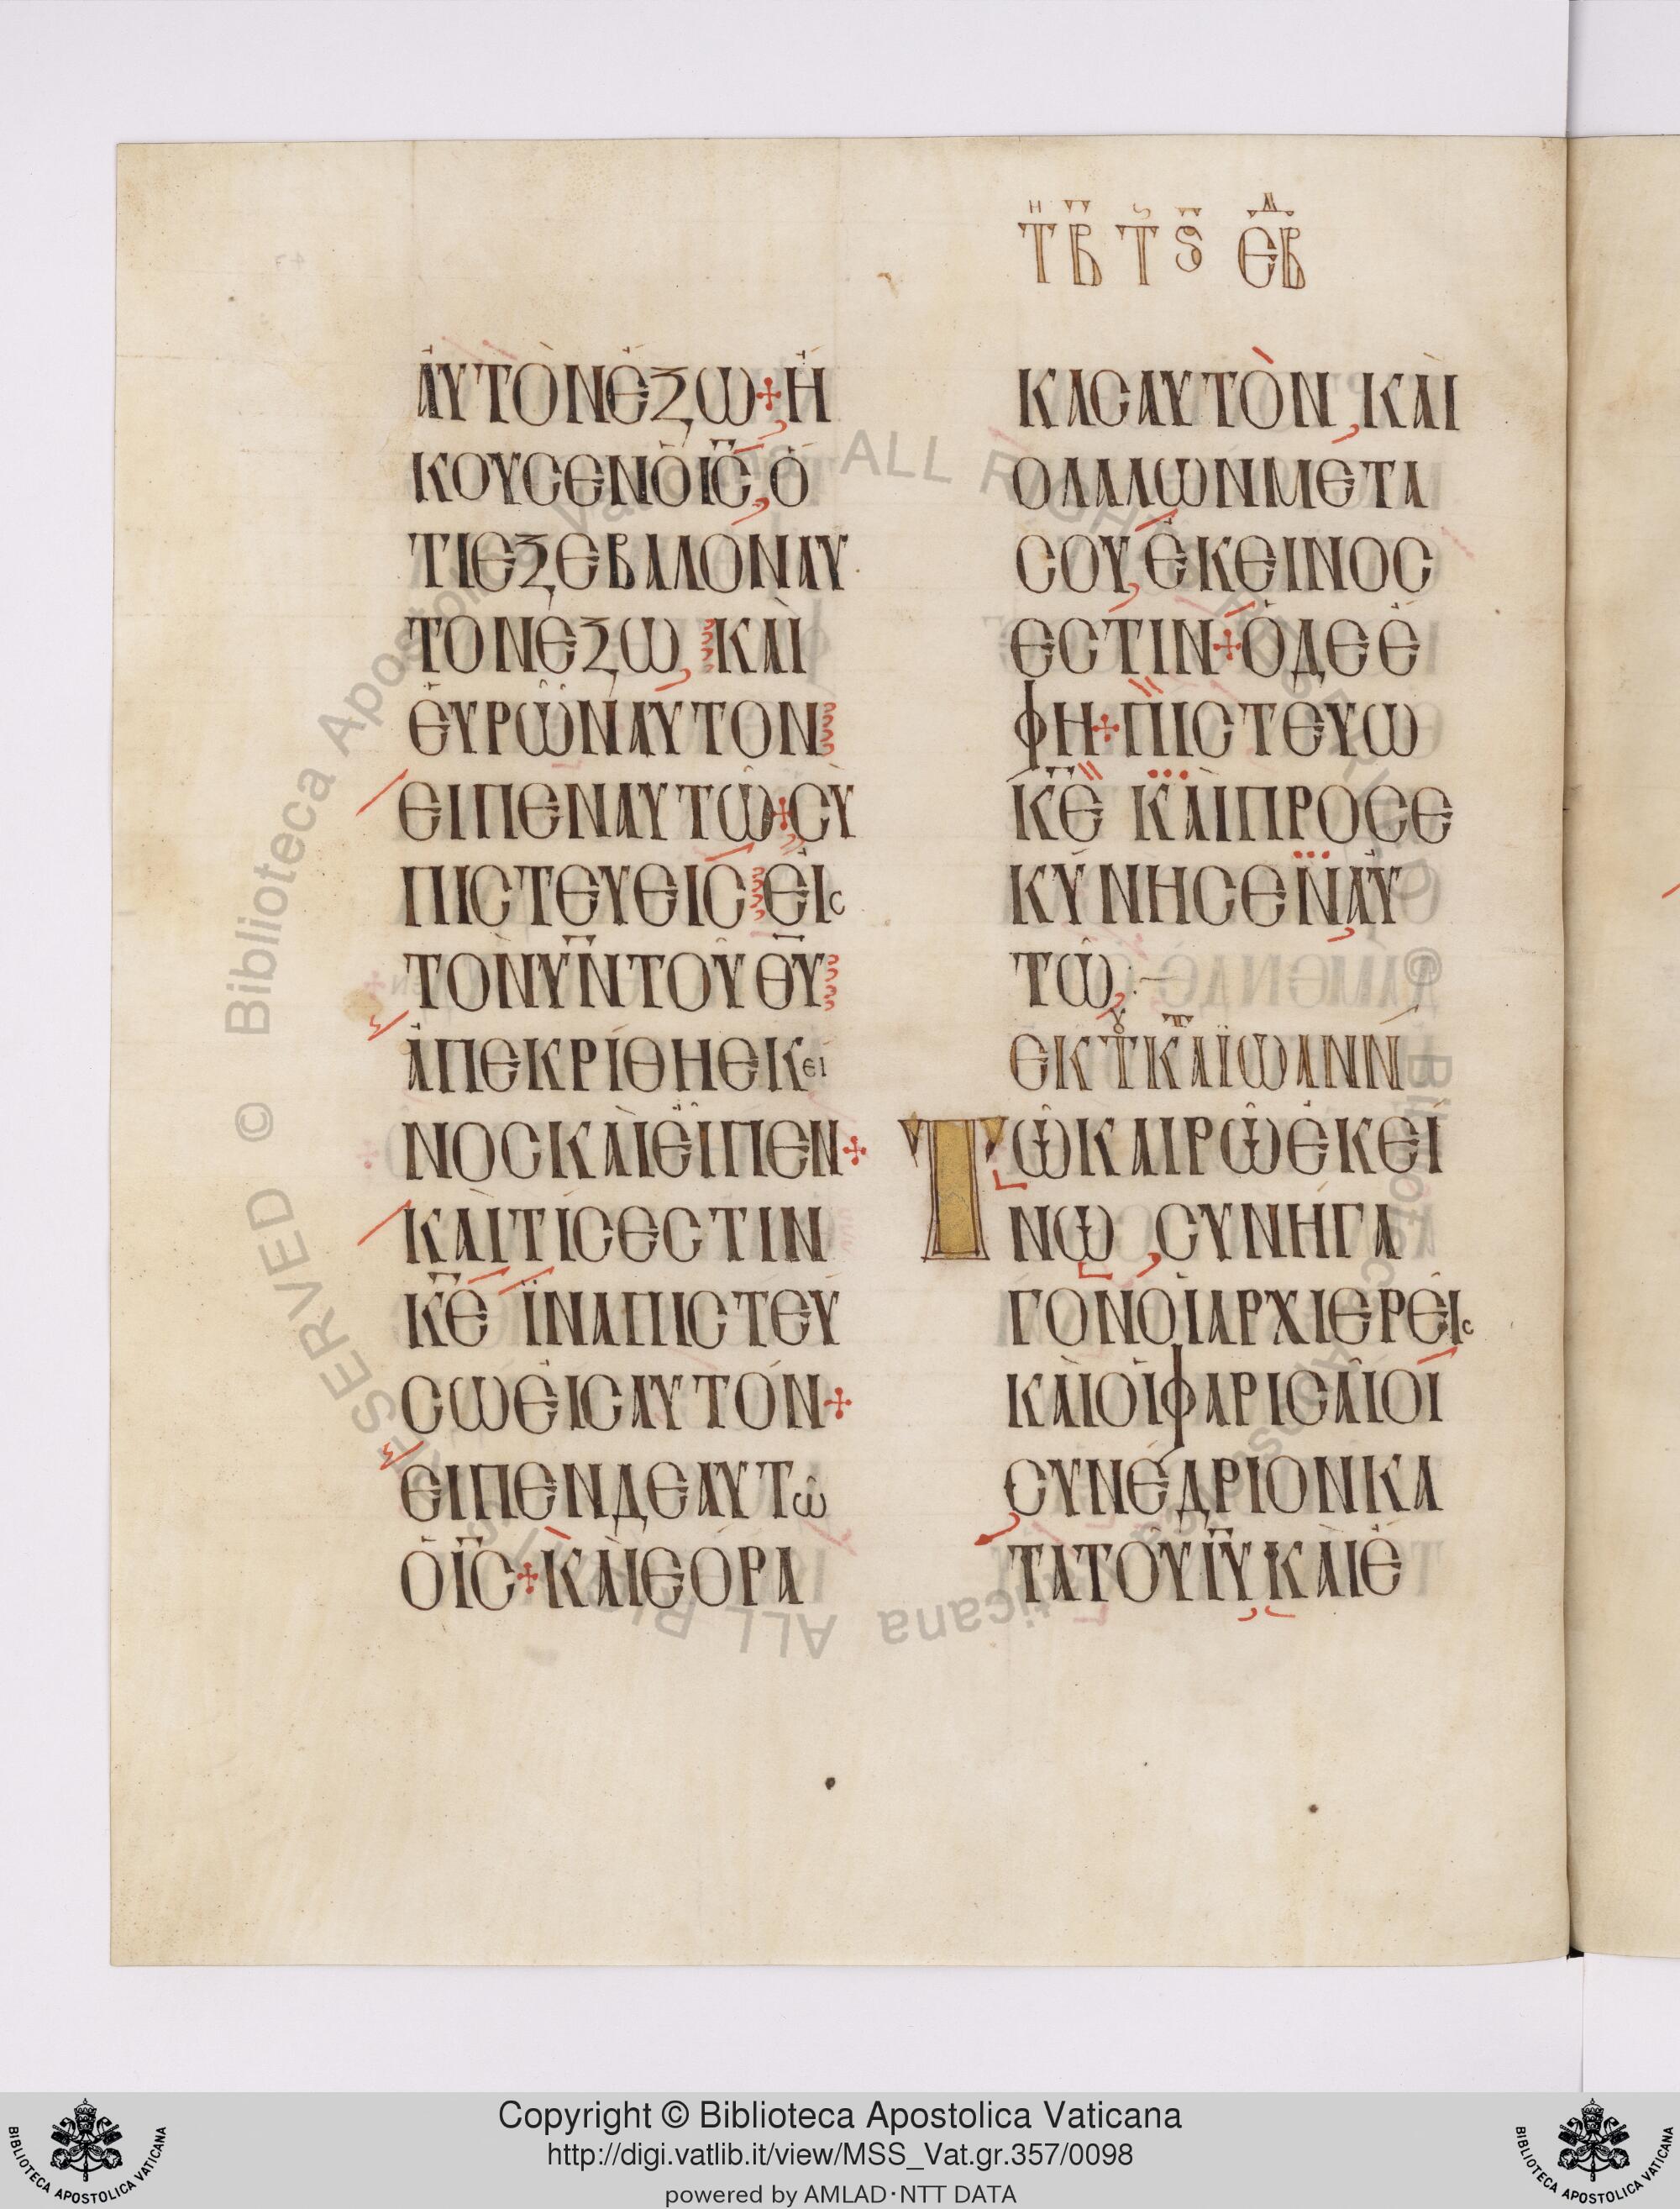 Τ Β Τ Ϛ ΕΒ
ἈΥΤῸΝἘΞΩ+Ἤ
ΚΟΥϹΕΝὉΙ̅Ϲ̅,Ὁ
ΤΙΕΞΕΒΑΛΟΝΑΥ
ΤΟΝἘΞΩ, ΚΑῚ
ἙΥΡῺΝἈΥΤΟΝ
ΕΙΠΕΝΑΥΤῶ+ϹῪ
ΠΙϹΤΕΥΕΙϹἘΙϹ
ΤῸΝΥ̅Ν̅ΤΟΥ͂Θ̅Υ̅
ἈΠΕΚΡΊΘΗΕΚΕΙ
ΝΟϹΚΑῚΕἾΠΕΝ+
ΚΑῚΤΊϹΕϹΤΙΝ
Κ̅Ε̅ ἽΝΑΠΙϹΤΕΎ
ϹΩἘΙϹΑΥΤΌΝ+
ΕΙΠΕΝΔΕΑΥΤῶ
ὉΙ̅Ϲ̅+ΚΑῚΕΟΡΑ
ΚΑϹΑΥΤῸΝ,ΚΑῚ
ΟΛΑΛΩΝΜΕΤΑ
ϹΟΥ,ἘΚΕΙΝΟϹ
ΕϹΤΙΝ+ὉΔΕἜ
ΦΗ+ΠΙϹΤΕΥΩ
Κ̅Ε̅ ΚΑῚΠΡΟϹΕ
ΚΎΝΗϹΕΝἈΥ
Τῶ,:–
ΕΚΤΟΥΚΑΤΑΪΩΑΝΝ
ΤῶΚΑΙΡῶἘΚΕΊ
ΝΩ ,ϹΥΝΉΓΑ
ΓΟΝὉΙΑΡΧΙΕΡΕΙ͂Ϲ
ΚΑῚΟἹΦΑΡΙϹΑΙ͂ΟΙ
ϹΥΝΈΔΡΙΟΝΚΑ
ΤΑΤΟΥ͂Ι̅Υ̅,ΚΑῚἜ
© Biblioteca Apostolica Vaticana ALL RIGHTS RESERVED © Biblioteca Apostolica Vaticana ALL RIGHTS RESERVED
Copyright © Biblioteca Apostolica Vaticana
http://digi.vatlib.it/view/MSS_Vat.gr.357/0098
powered by AMLAD·NTT DATA
BIBLIOTECA APOSTOLICA VATICANA
BIBLIOTECA APOSTOLICA VATICANA